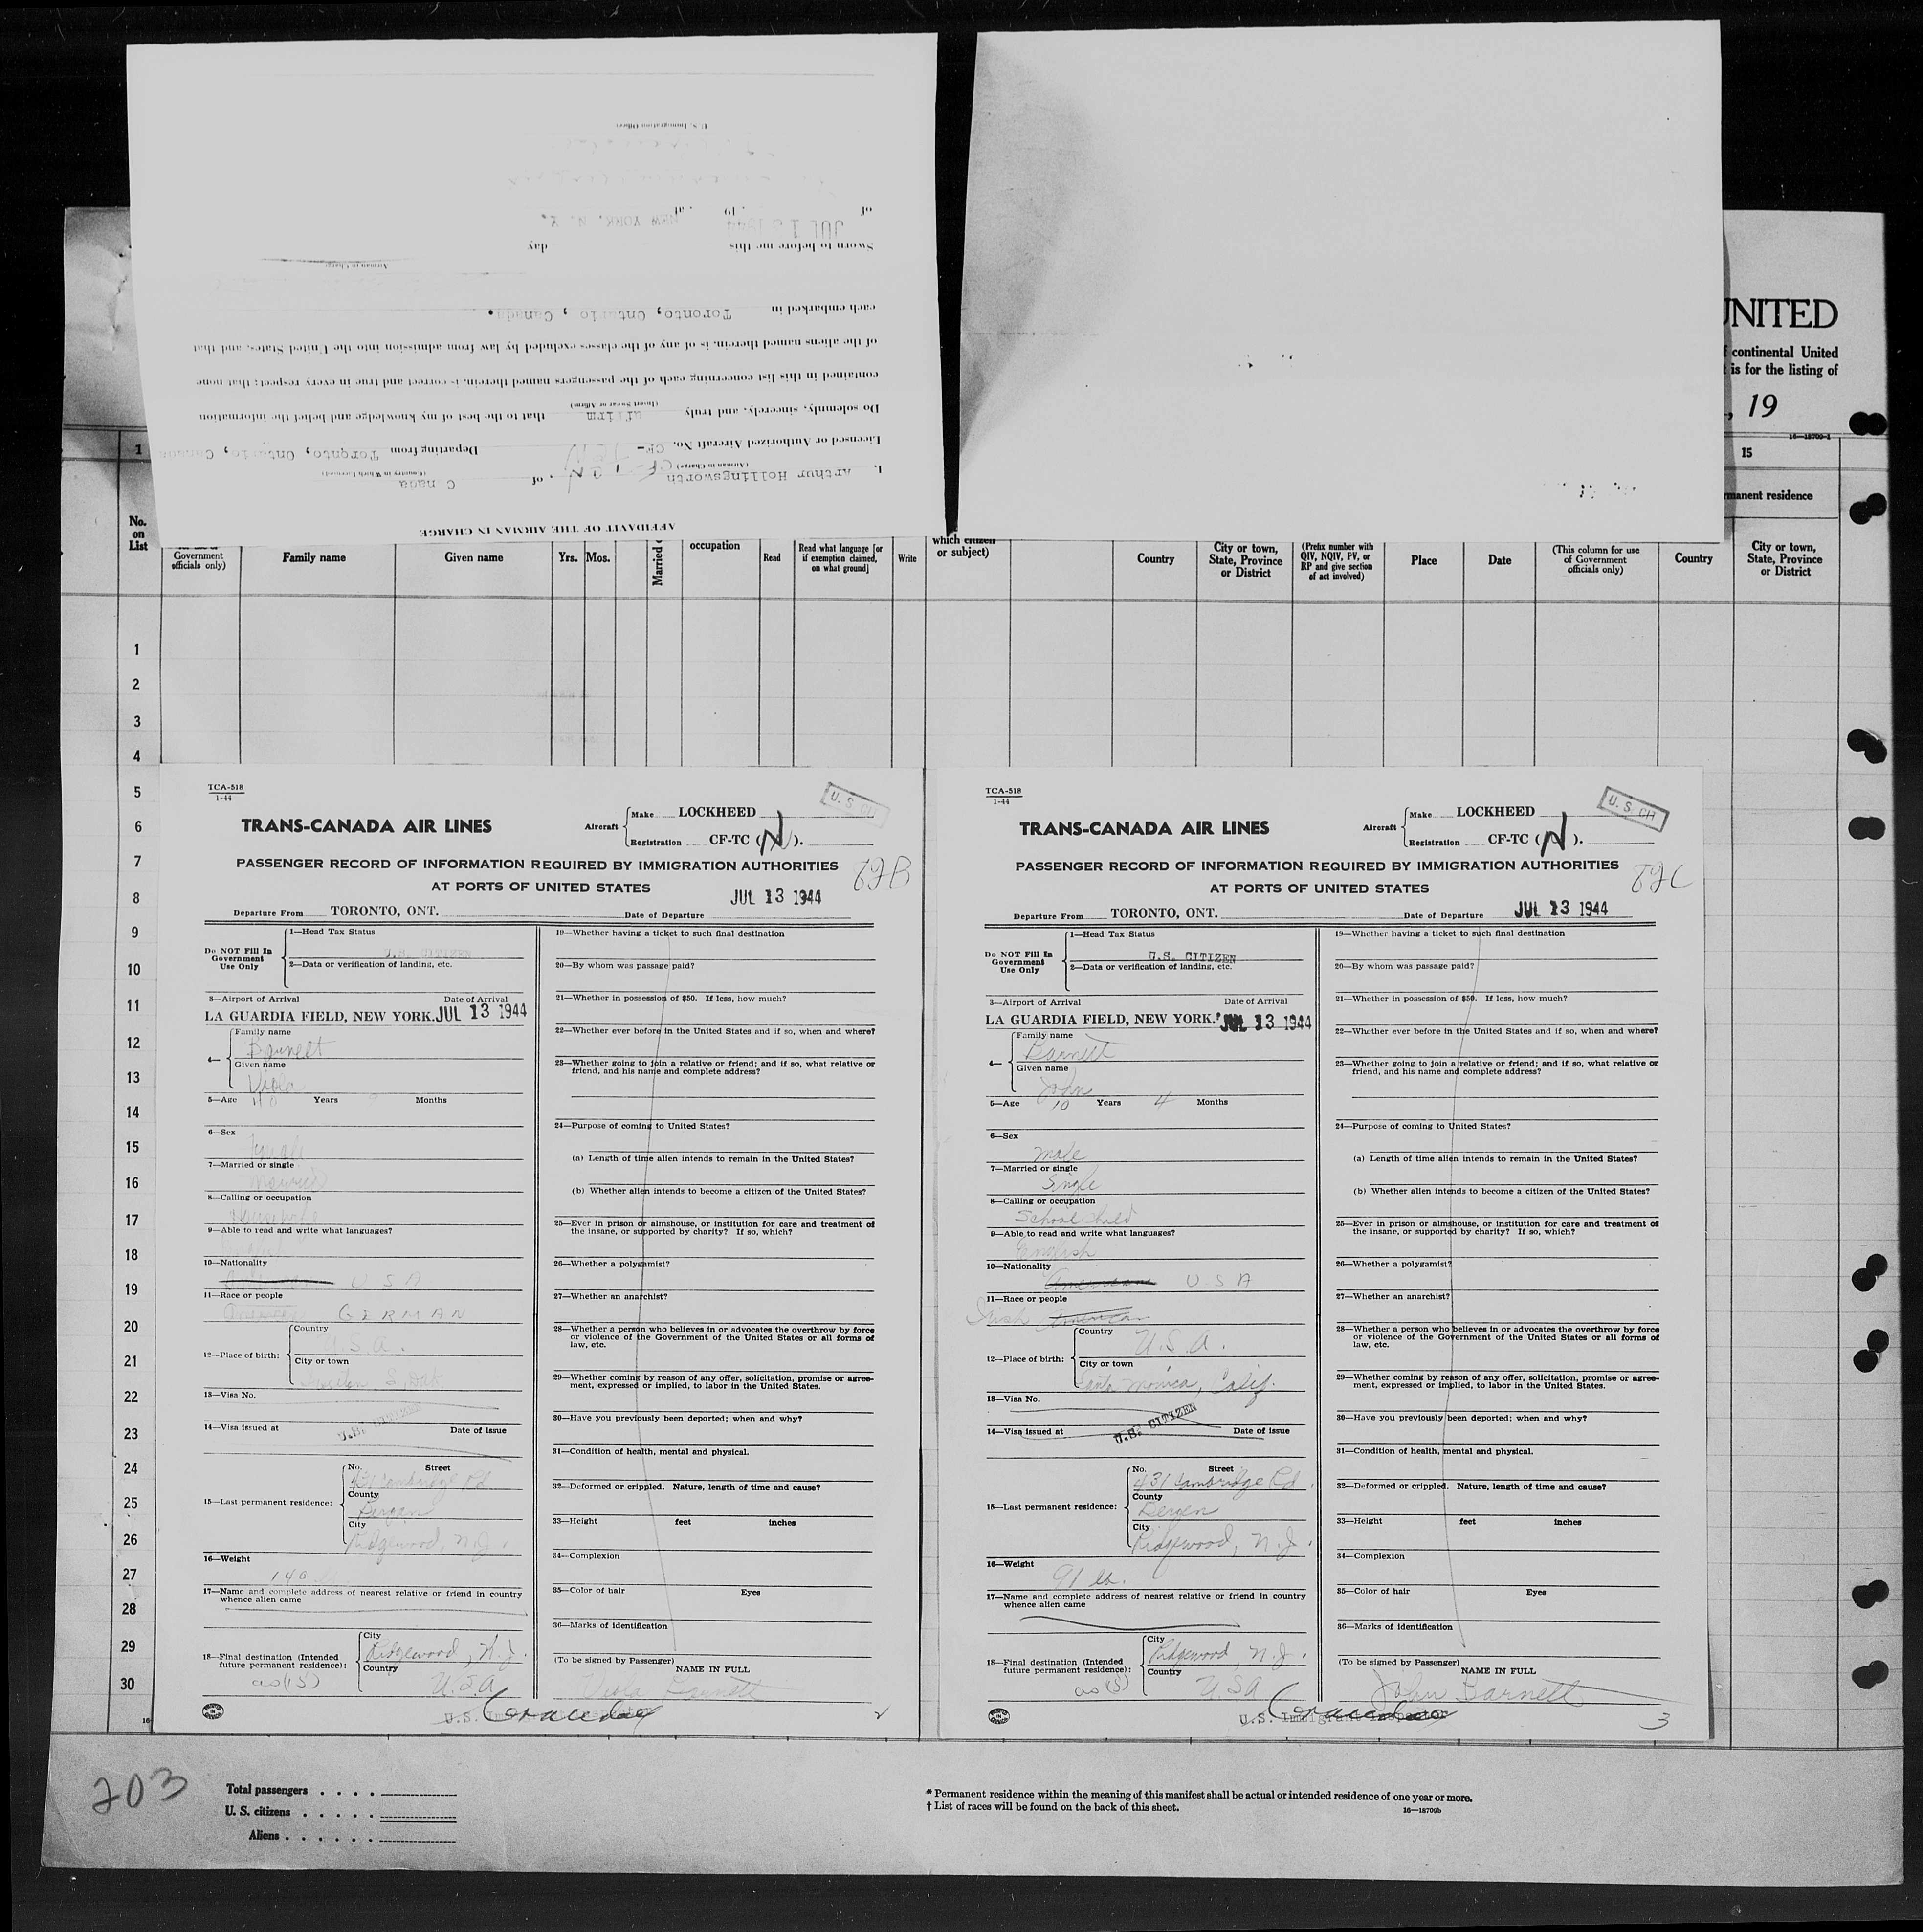 AFFIDAVIT OF THE AIRMAN IN CHARGE
I, Arthur Hollingsworth, of Canada
(Airman in Charge) (Country in Which Licensed)
Licensed or Authorized Aircraft No. CF- Departing from Toronto, Ontario, Canada
Do solemnly, sincerely, and truly affirm that to the best of my knowledge and belief the information
(Insert Swear or Affirm)
contained in this list concerning each of the passengers named therein, is correct and true in every respect; that none
of the aliens named therein, is of any of the classes excluded by law from admission into the United States, and that
each embarked in Toronto, Ontario, Canada.
Airman in Charge
Sworn to before me this day
of JUL 13 1944 19 , at NEW YORK, N. Y.
U.S. Immigration Officer
UNITED
f continental United
t is for the listing of
, 19
16—18700-1
1
15
rmanent residence
No. on List
Government officials only)
Family name
Given name
Yrs.
Mos.
Married
occupation
Read
Read what language [or if exemption claimed, on what ground]
Write
which citizen or subject)
Country
City or town, State, Province or District
(Prefix number with QIV, NQIV, PV, or RP and give section of act involved)
Place
Date
(This column for use of Government officials only)
Country
City or town, State, Province or District
1
2
3
4
5
6
7
8
9
10
11
12
13
14
15
16
17
18
19
20
21
22
23
24
25
26
27
28
29
30
16
TCA-518
1-44
U. S. CIT
TRANS-CANADA AIR LINES
Aircraft
Make LOCKHEED
Registration CF-TC (N).
PASSENGER RECORD OF INFORMATION REQUIRED BY IMMIGRATION AUTHORITIES
AT PORTS OF UNITED STATES
JUL 13 1944
Departure From TORONTO, ONT. Date of Departure
Do NOT Fill In Government Use Only
1—Head Tax Status
U.S. CITIZEN
2—Data or verification of landing, etc.
3—Airport of Arrival Date of Arrival
LA GUARDIA FIELD, NEW YORK. JUL 13 1944
4— Family name
Barnett
Given name
Viola
5—Age Years Months
6—Sex
Female
7—Married or single
Married
8—Calling or occupation
Housewife
9—Able to read and write what languages?
10—Nationality
USA
11—Race or people
GERMAN
12—Place of birth: Country
U.S.A.
City or town
S. Dak
13—Visa No.
14—Visa issued at U.S. CITIZEN Date of issue
15—Last permanent residence: No. Street
431 Cambridge Rd
County
Bergen
City
Ridgewood, N.J.
16—Weight
140
17—Name and complete address of nearest relative or friend in country
whence alien came
18—Final destination (Intended future permanent residence): City
Ridgewood, N.J.
Country
as(15) U.S.A
19—Whether having a ticket to such final destination
20—By whom was passage paid?
21—Whether in possession of $50. If less, how much?
22—Whether ever before in the United States and if so, when and where?
23—Whether going to join a relative or friend; and if so, what relative or
friend, and his name and complete address?
24—Purpose of coming to United States?
(a) Length of time alien intends to remain in the United States?
(b) Whether alien intends to become a citizen of the United States?
25—Ever in prison or almshouse, or institution for care and treatment of
the insane, or supported by charity? If so, which?
26—Whether a polygamist?
27—Whether an anarchist?
28—Whether a person who believes in or advocates the overthrow by force
or violence of the Government of the United States or all forms of
law, etc.
29—Whether coming by reason of any offer, solicitation, promise or agree-
ment, expressed or implied, to labor in the United States.
30—Have you previously been deported; when and why?
31—Condition of health, mental and physical.
32—Deformed or crippled. Nature, length of time and cause?
33—Height feet inches
34—Complexion
35—Color of hair Eyes
36—Marks of identification
(To be signed by Passenger)
NAME IN FULL
Viola Barnett
U.S. Immigrant Inspector
2
TCA-518
1-44
U. S. CIT
TRANS-CANADA AIR LINES
Aircraft
Make LOCKHEED
Registration CF-TC (N).
PASSENGER RECORD OF INFORMATION REQUIRED BY IMMIGRATION AUTHORITIES
AT PORTS OF UNITED STATES
Departure From TORONTO, ONT. Date of Departure JUL 13 1944
Do NOT Fill In Government Use Only
1—Head Tax Status
U.S. CITIZEN
2—Data or verification of landing, etc.
3—Airport of Arrival Date of Arrival
LA GUARDIA FIELD, NEW YORK. JUL 13 1944
4— Family name
Barnett
Given name
John
5—Age 10 Years 4 Months
6—Sex
male
7—Married or single
Single
8—Calling or occupation
School child
9—Able to read and write what languages?
English
10—Nationality
American USA
11—Race or people
Irish American
12—Place of birth: Country
U.S.A.
City or town
Santa Monica, Calif.
13—Visa No.
14—Visa issued at U.S. CITIZEN Date of issue
15—Last permanent residence: No. Street
431 Cambridge Rd.
County
Bergen
City
Ridgewood, N.J.
16—Weight
91 lb.
17—Name and complete address of nearest relative or friend in country
whence alien came
18—Final destination (Intended future permanent residence): City
Ridgewood, N.J.
Country
as(15) USA
19—Whether having a ticket to such final destination
20—By whom was passage paid?
21—Whether in possession of $50. If less, how much?
22—Whether ever before in the United States and if so, when and where?
23—Whether going to join a relative or friend; and if so, what relative or
friend, and his name and complete address?
24—Purpose of coming to United States?
(a) Length of time alien intends to remain in the United States?
(b) Whether alien intends to become a citizen of the United States?
25—Ever in prison or almshouse, or institution for care and treatment of
the insane, or supported by charity? If so, which?
26—Whether a polygamist?
27—Whether an anarchist?
28—Whether a person who believes in or advocates the overthrow by force
or violence of the Government of the United States or all forms of
law, etc.
29—Whether coming by reason of any offer, solicitation, promise or agree-
ment, expressed or implied, to labor in the United States.
30—Have you previously been deported; when and why?
31—Condition of health, mental and physical.
32—Deformed or crippled. Nature, length of time and cause?
33—Height feet inches
34—Complexion
35—Color of hair Eyes
36—Marks of identification
(To be signed by Passenger)
NAME IN FULL
John Barnett
U.S. Immigrant Inspector
3
203
Total passengers . . . .
U. S. citizens . . . . .
Aliens . . . . . .
* Permanent residence within the meaning of this manifest shall be actual or intended residence of one year or more.
† List of races will be found on the back of this sheet.
16—18700b